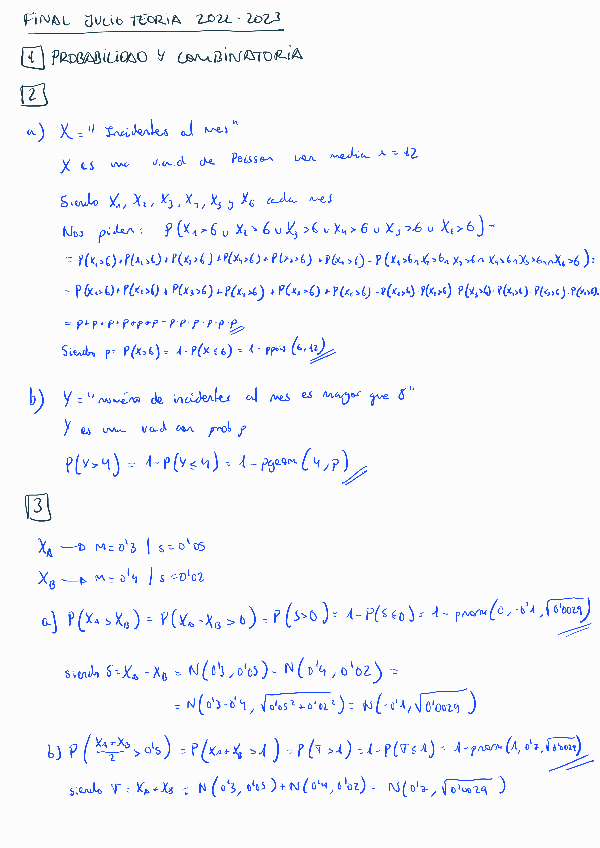 FINAL JULIO TEORIA 2022-2023
1 PROBABILIDAD Y COMBINATORIA
2
a) X = "Incidentes al mes"
X es una v.a.d de Poisson con media λ = 12
Siendo X₁, X₂, X₃, X₄, X₅ y X₆ cada mes
Nos piden: P(X₁>6 ∪ X₂>6 ∪ X₃>6 ∪ X₄>6 ∪ X₅>6 ∪ X₆>6) =
= P(X₁>6)+P(X₂>6)+P(X₃>6)+P(X₄>6)+P(X₅>6)+P(X₆>6)-P(X₁>6∩X₂>6∩X₃>6∩X₄>6∩X₅>6∩X₆>6)=
= P(X₁>6)+P(X₂>6)+P(X₃>6)+P(X₄>6)+P(X₅>6)+P(X₆>6)-P(X₁>6)·P(X₂>6)·P(X₃>6)·P(X₄>6)·P(X₅>6)·P(X₆>6)=
= p+p+p+p+p+p-p·p·p·p·p·p
Siendo p = P(X>6) = 1-P(X≤6) = 1-ppois(6,12)
b) Y = "número de incidentes al mes es mayor que 8"
Y es una vad con prob p
P(Y>4) = 1-P(Y≤4) = 1-pgeom(4,p)
3
X_A → M=0'3 | s=0'05
X_B → M=0'4 | s=0'02
a) P(X_A>X_B) = P(X_A-X_B>0) = P(S>0) = 1-P(S≤0) = 1-pnorm(0,-0'1,√0'0029)
siendo S=X_A-X_B = N(0'3,0'05)-N(0'4,0'02) =
= N(0'3-0'4, √0'05²+0'02²) = N(-0'1, √0'0029)
b) P((X_A+X_B)/2 > 0'5) = P(X_A+X_B>1) = P(T>1) = 1-P(T≤1) = 1-pnorm(1,0'7,√0'0029)
siendo T = X_A+X_B = N(0'3,0'05)+N(0'4,0'02) = N(0'7,√0'0029)